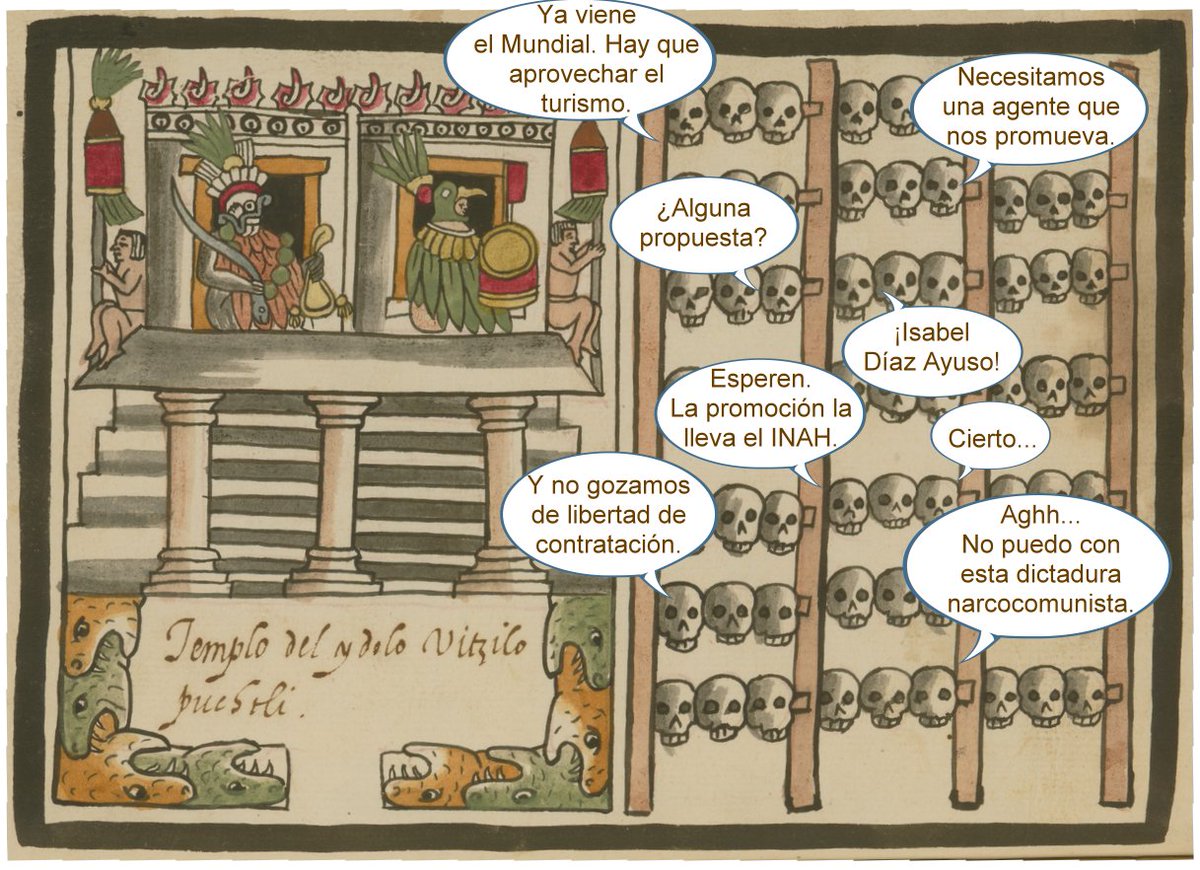 Ya viene
el Mundial. Hay que
aprovechar el
turismo.
Necesitamos
una agente que
nos promueva.
¿Alguna
propuesta?
¡Isabel
Díaz Ayuso!
Esperen.
La promoción la
lleva el INAH.
Cierto...
Y no gozamos
de libertad de
contratación.
Aghh...
No puedo con
esta dictadura
narcocomunista.
Templo del ydolo Vitzilo
puchtli.